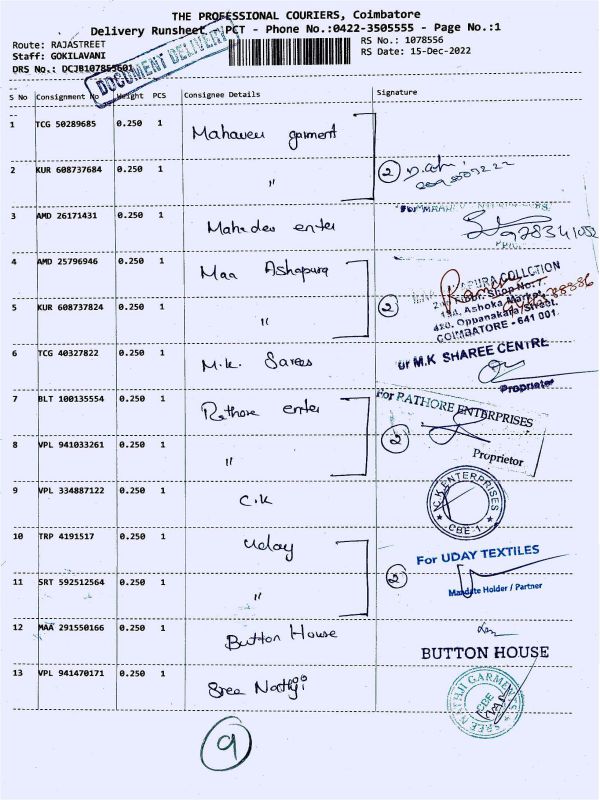 THE PROFESSIONAL COURIERS, Coimbatore
Delivery Runsheet PCT - Phone No.:0422-3505555 - Page No.:1
Route: RAJASTREET
RS No.: 1078556
Staff: GOKILAVANI
RS Date: 15-Dec-2022
DRS No.: DCJB107855601
DOCUMENT DELIVERY
S No Consignment No Weight PCS Consignee Details Signature
1 TCG 50289685 0.250 1 Mahaveer garment
2 KUR 608737684 0.250 1 " 2
3 AMD 26171431 0.250 1 Mahadev enter
4 AMD 25796946 0.250 1 Maa Ashapura
COLLCTION
Shop No.7.
Ashoka Market,
Oppanakara Street.
COIMBATORE - 641 001.
5 KUR 608737824 0.250 1 " 2
6 TCG 40327822 0.250 1 M.K. Sarees
M.K SHAREE CENTRE
Proprietor
7 BLT 100135554 0.250 1 Rathore enter
For RATHORE ENTERPRISES
8 VPL 941033261 0.250 1 " 2
Proprietor
9 VPL 334887122 0.250 1 C.K
C.K ENTERPRISES
CBE-1
10 TRP 4191517 0.250 1 Uday
For UDAY TEXTILES
11 SRT 592512564 0.250 1 " 2
Mandate Holder / Partner
12 MAA 291550166 0.250 1 Button House
BUTTON HOUSE
13 VPL 941470171 0.250 1 Sree Nathji
SREE NATHJI GARMENTS
CBE
9